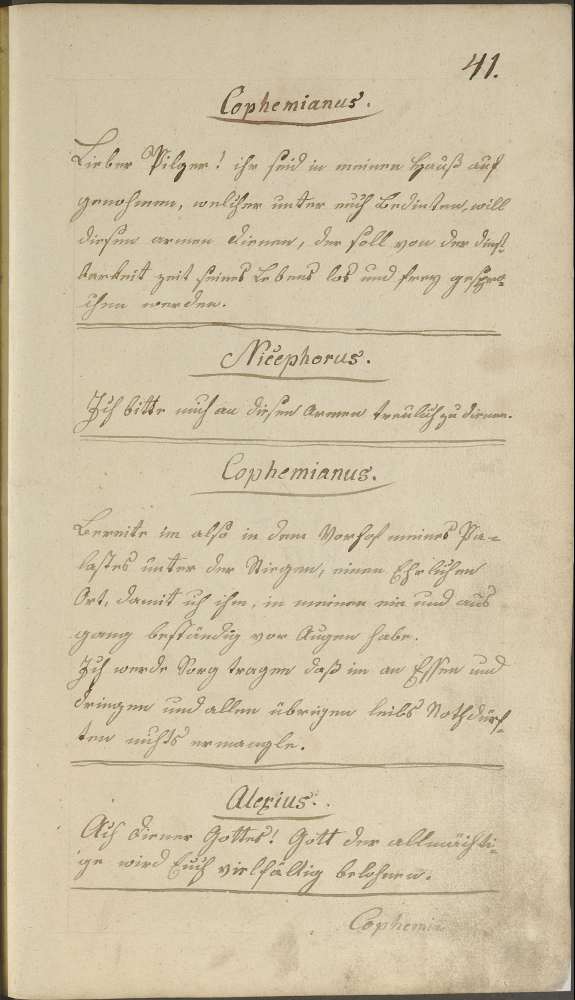 41.
Cophemianus.
Lieber Pilger! ihr seid in meinen Hauß auf
genohmen, welcher unter euch Bedienten, will
diesem armen dienen, der soll von der dinst-
barkeit zeit seines Lebens los und freÿ gespro-
chen werden.
Nicephorus.
Ich bitte mich an diesen Armen treulich zu dienen.
Cophemianus.
Bereite im also in dem Vorhof meines Pa-
lastes unter der Stiegen, einen Ehrlichen
Ort, damit ich ihn, in meinen ein und aus
gang beständig vor Augen habe.
Ich werde Sorg tragen daß im an Essen und
dringen und allen übrigen leibs Nothdürf-
ten nichts ermangle.
Alexius.
Ach diener Gottes! Gott der allmächti-
ge wird Euch vielfältig belohnen.
Cophemia